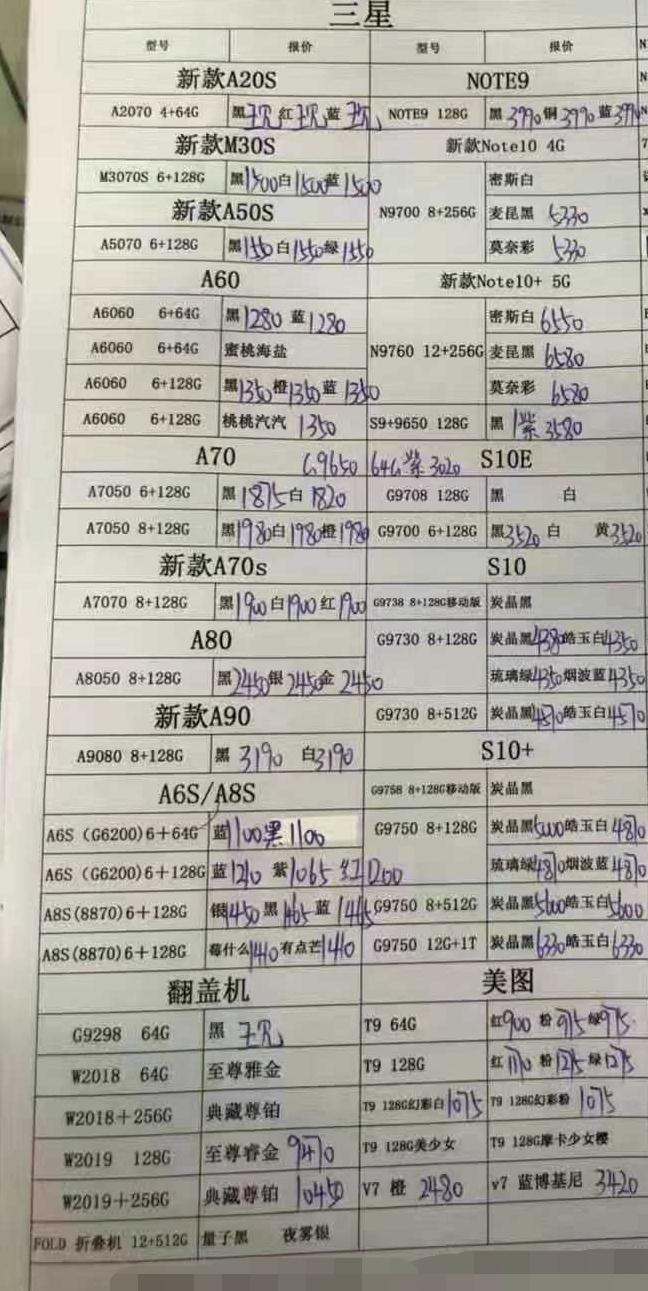 三星
型号 报价 型号 报价
新款A20S NOTE9
A2070 4+64G 黑 红 蓝 NOTE9 128G 黑3990铜3990蓝3990
新款M30S 新款Note10 4G
M3070S 6+128G 黑1500白1500蓝1500 密斯白
新款A50S N9700 8+256G 麦昆黑 5330
A5070 6+128G 黑1550白1550绿1550 莫奈彩 5330
A60 新款Note10+ 5G
A6060 6+64G 黑1280 蓝1280 密斯白6550
A6060 6+64G 蜜桃海盐 N9760 12+256G 麦昆黑 6580
A6060 6+128G 黑1350橙1350蓝1350 莫奈彩 6580
A6060 6+128G 桃桃汽汽 1350 S9+9650 128G 黑 紫3580
A70 G9650 64G紫3020 S10E
A7050 6+128G 黑1875白1820 G9708 128G 黑 白
A7050 8+128G 黑1980白1980橙1980 G9700 6+128G 黑3520 白 黄3520
新款A70s S10
A7070 8+128G 黑1900白1900红1900 G9738 8+128G移动版 炭晶黑
A80 G9730 8+128G 炭晶黑4380皓玉白4350
A8050 8+128G 黑2450银2450金2450 琉璃绿4350烟波蓝4350
新款A90 G9730 8+512G 炭晶黑4570皓玉白4570
A9080 8+128G 黑 3190 白3190 S10+
A6S/A8S G9758 8+128G移动版 炭晶黑
A6S（G6200)6+64G 蓝1100黑1100 G9750 8+128G 炭晶黑5000皓玉白4870
A6S（G6200)6+128G 蓝1210 紫1065 红1200 琉璃绿4870烟波蓝4870
A8S(8870)6+128G 银1450黑1465蓝1445 G9750 8+512G 炭晶黑5600皓玉白5600
A8S(8870)6+128G 莓什么1410有点芒1410 G9750 12G+1T 炭晶黑6330皓玉白6330
翻盖机 美图
G9298 64G 黑 T9 64G 红900 粉975绿975
W2018 64G 至尊雅金 T9 128G 红1170粉1275绿1275
W2018+256G 典藏尊铂 T9 128G幻彩白1075 T9 128G幻彩粉 1075
W2019 128G 至尊睿金 9470 T9 128G美少女 T9 128G摩卡少女樱
W2019+256G 典藏尊铂 10450 V7 橙 2480 v7 蓝博基尼 3420
FOLD 折叠机 12+512G 量子黑 夜雾银